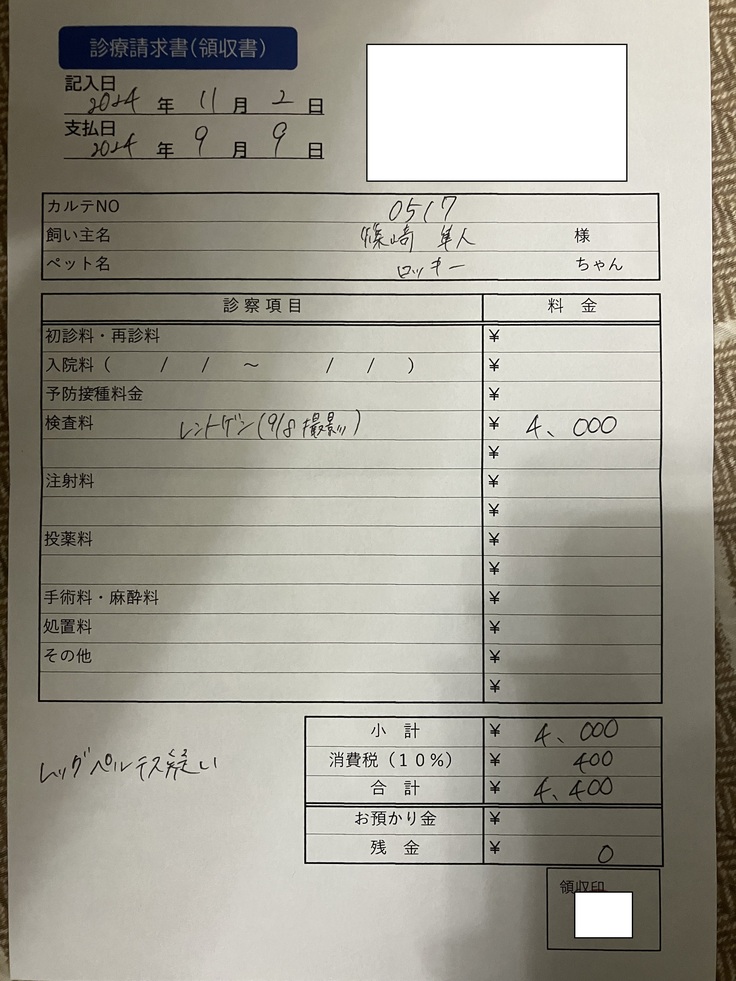 診療請求書(領収書)
記入日
2024 年 11 月 2 日
支払日
2024 年 9 月 9 日
カルテNO 0517
飼い主名 篠崎 隼人 様
ペット名 ロッキー ちゃん
診察項目 料 金
初診料・再診料 ¥
入院料( / / ～ / / ) ¥
予防接種料金 ¥
検査料 レントゲン(9/8撮影) ¥ 4、000
¥
注射料 ¥
¥
投薬料 ¥
¥
手術料・麻酔料 ¥
処置料 ¥
その他 ¥
¥
小 計 ¥ 4、000
消費税(10%) 400
合 計 ¥ 4、400
お預かり金 ¥
残 金 ¥ 0
レッグペルテス疑い
領収印